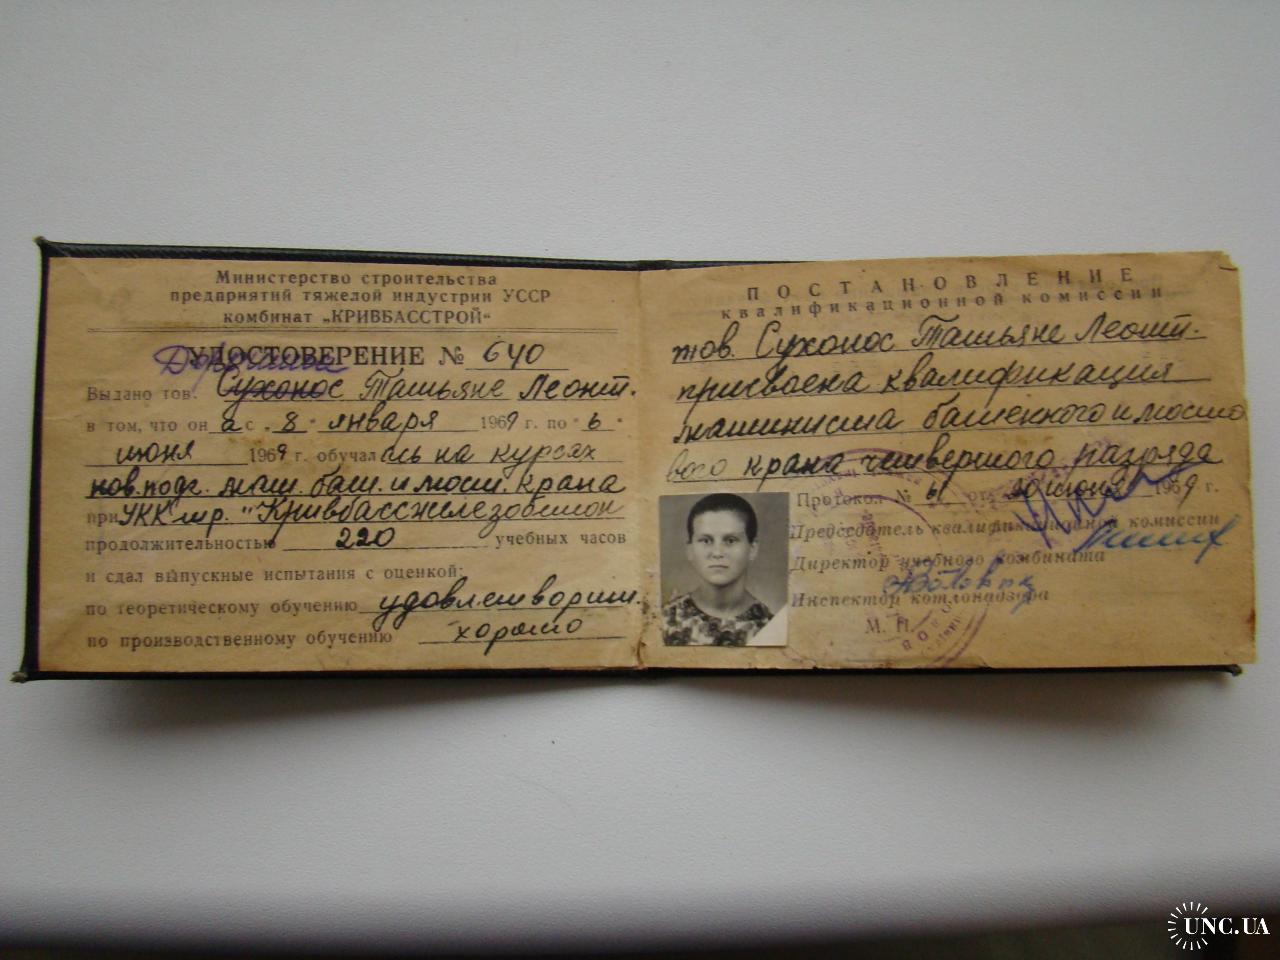 Министерство строительства
предприятий тяжелой индустрии УССР
комбинат „КРИВБАССТРОЙ“
УДОСТОВЕРЕНИЕ № 640
Выдано тов. Сухонос Татьяне Леонт.
в том, что он а с "8" января 1969 г. по "6"
июня 1969 г. обучалась на курсах
нов. подг. маш. баш. и мост. крана
при УКК тр. "Кривбассжелезобетон
продолжительностью 220 учебных часов
и сдал выпускные испытания с оценкой:
по теоретическому обучению удовлетворит.
по производственному обучению хорошо
ПОСТАНОВЛЕНИЕ
квалификационной комиссии
тов. Сухонос Татьяне Леонт.
присвоена квалификация
машиниста башенного и мосто
вого крана четвертого разряда
Протокол № 6 от июня 1969 г.
Председатель квалификационной комиссии
Директор учебного комбината
Инспектор котлонадзора
М. П.
UNC.UA